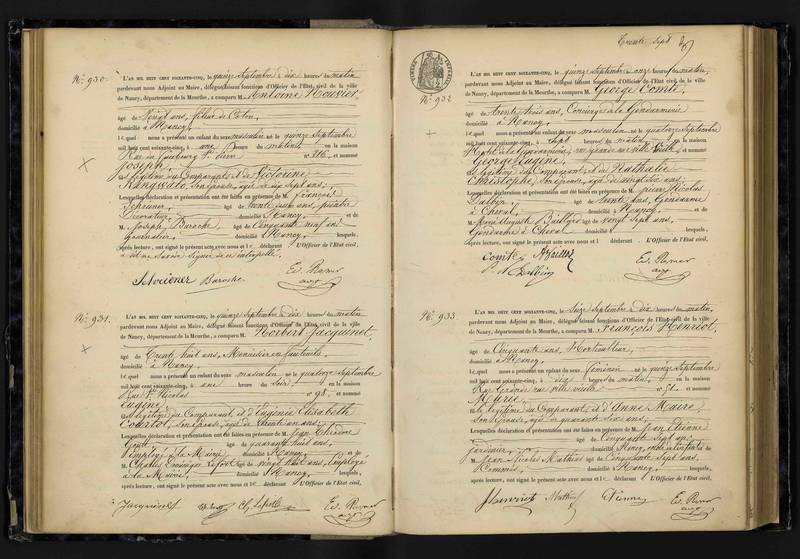 N° 930.
L'AN MIL HUIT CENT SOIXANTE-CINQ, le quinze Septembre à dix heures du matin
pardevant nous Adjoint au Maire, délégué faisant fonctions d'Officier de l'Etat civil de la ville
de Nancy, département de la Meurthe, a comparu M. Antoine
âgé de vingt ans, fileur de Coton,
domicilié à Nancy,
lequel nous a présenté un enfant du sexe masculin né le quinze Septembre
mil huit cent soixante-cinq, à une heure du matin en la maison
Rue du faubourg St. Pierre n° 116, et nommé
Joseph,
fils légitime du Comparant et de Victorine
son épouse, âgée de
Lesquelles déclaration et présentation ont été faites en présence de M. François
Schriener, âgé de trente deux ans, peintre
Décorateur, domicilié à Nancy, et de
M. Joseph Baroche, âgé de Cinquante neuf ans,
Journalier, domicilié à Nancy, lesquels,
après lecture, ont signé le présent acte avec nous et le déclarant L'Officier de l'Etat civil,
a dit ne savoir signer de ce interpellé.
Schriener Baroche
N° 931.
L'AN MIL HUIT CENT SOIXANTE-CINQ, le quinze Septembre à dix heures du matin,
pardevant nous Adjoint au Maire, délégué faisant fonctions d'Officier de l'Etat civil de la ville
de Nancy, département de la Meurthe, a comparu M. Norbert Jacquinet,
âgé de Trente huit ans, Menuisier en fauteuils,
domicilié à Nancy
lequel nous a présenté un enfant du sexe masculin né le quatorze Septembre
mil huit cent soixante-cinq, à une heure du Soir, en la maison
Rue St. Nicolas n° 98, et nommé
Eugène
fils légitime du Comparant et d'Eugénie Elisabeth
Courtot, son épouse, âgée de trente un ans;
Lesquelles déclaration et présentation ont été faites en présence de M. Jean Théodore
âgé de quarante huit ans,
Employé à la Mairie domicilié à Nancy, et de
M. Charles Dominique âgé de vingt huit ans, Employé
à la Mairie, domicilié à Nancy, lesquels,
après lecture, ont signé le présent acte avec nous et le déclarant L'Officier de l'Etat civil,
Trente Sept
N° 932
L'AN MIL HUIT CENT SOIXANTE-CINQ, le quinze Septembre onze heures du matin,
pardevant nous Adjoint au Maire, délégué faisant fonctions d'Officier de l'Etat civil de la ville
de Nancy, département de la Meurthe, a comparu M. George Comte,
âgé de trente trois ans, Concierge à la Gendarmerie
domicilié à Nancy,
lequel nous a présenté un enfant du sexe masculin né le quatorze Septembre
mil huit cent soixante-cinq, à Sept heures du matin, en la maison
Hôtel de la Gendarmerie, rue grande ville vieille, et nommé
George Eugène,
fils légitime du Comparant et de Nathalie
Christophe, son épouse, âgée de vingt six ans,
Lesquelles déclaration et présentation ont été faites en présence de M. pierre Nicolas
Dalbin, âgé de trente ans, Gendarme
à Cheval, domicilié à Nancy, et de
M. âgé de vingt Sept ans,
Gendarme à Cheval domicilié à Nancy, lesquels,
après lecture, ont signé le présent acte avec nous et le déclarant. L'Officier de l'Etat civil,
Comte
Dalbin
N° 933
L'AN MIL HUIT CENT SOIXANTE-CINQ, le Seize Septembre à dix heures du matin,
pardevant nous Adjoint au Maire, délégué faisant fonctions d'Officier de l'Etat civil de la ville
de Nancy, département de la Meurthe, a comparu M. François Henriot,
âgé de Cinquante ans, Horticulteur,
domicilié à Nancy,
lequel nous a présenté un enfant du sexe féminin né le quinze Septembre
mil huit cent soixante-cinq, à dix heures du matin, en la maison
Rue Grande ville vieille n° et nommé
Marie,
fille légitime du Comparant et d'Anne Maire,
Son épouse, âgée de quarante six ans.
Lesquelles déclaration et présentation ont été faites en présence de M. Jean Etienne
âgé de Cinquante Sept ans,
Jardinier, domicilié à Nancy, oncle à l'enfant, et de
M. Jean Nicolas Mathieu âgé de Cinquante Sept ans,
domicilié à Nancy, lesquels,
après lecture, ont signé le présent acte avec nous et le déclarant L'Officier de l'Etat civil,
Henriot Mathieu